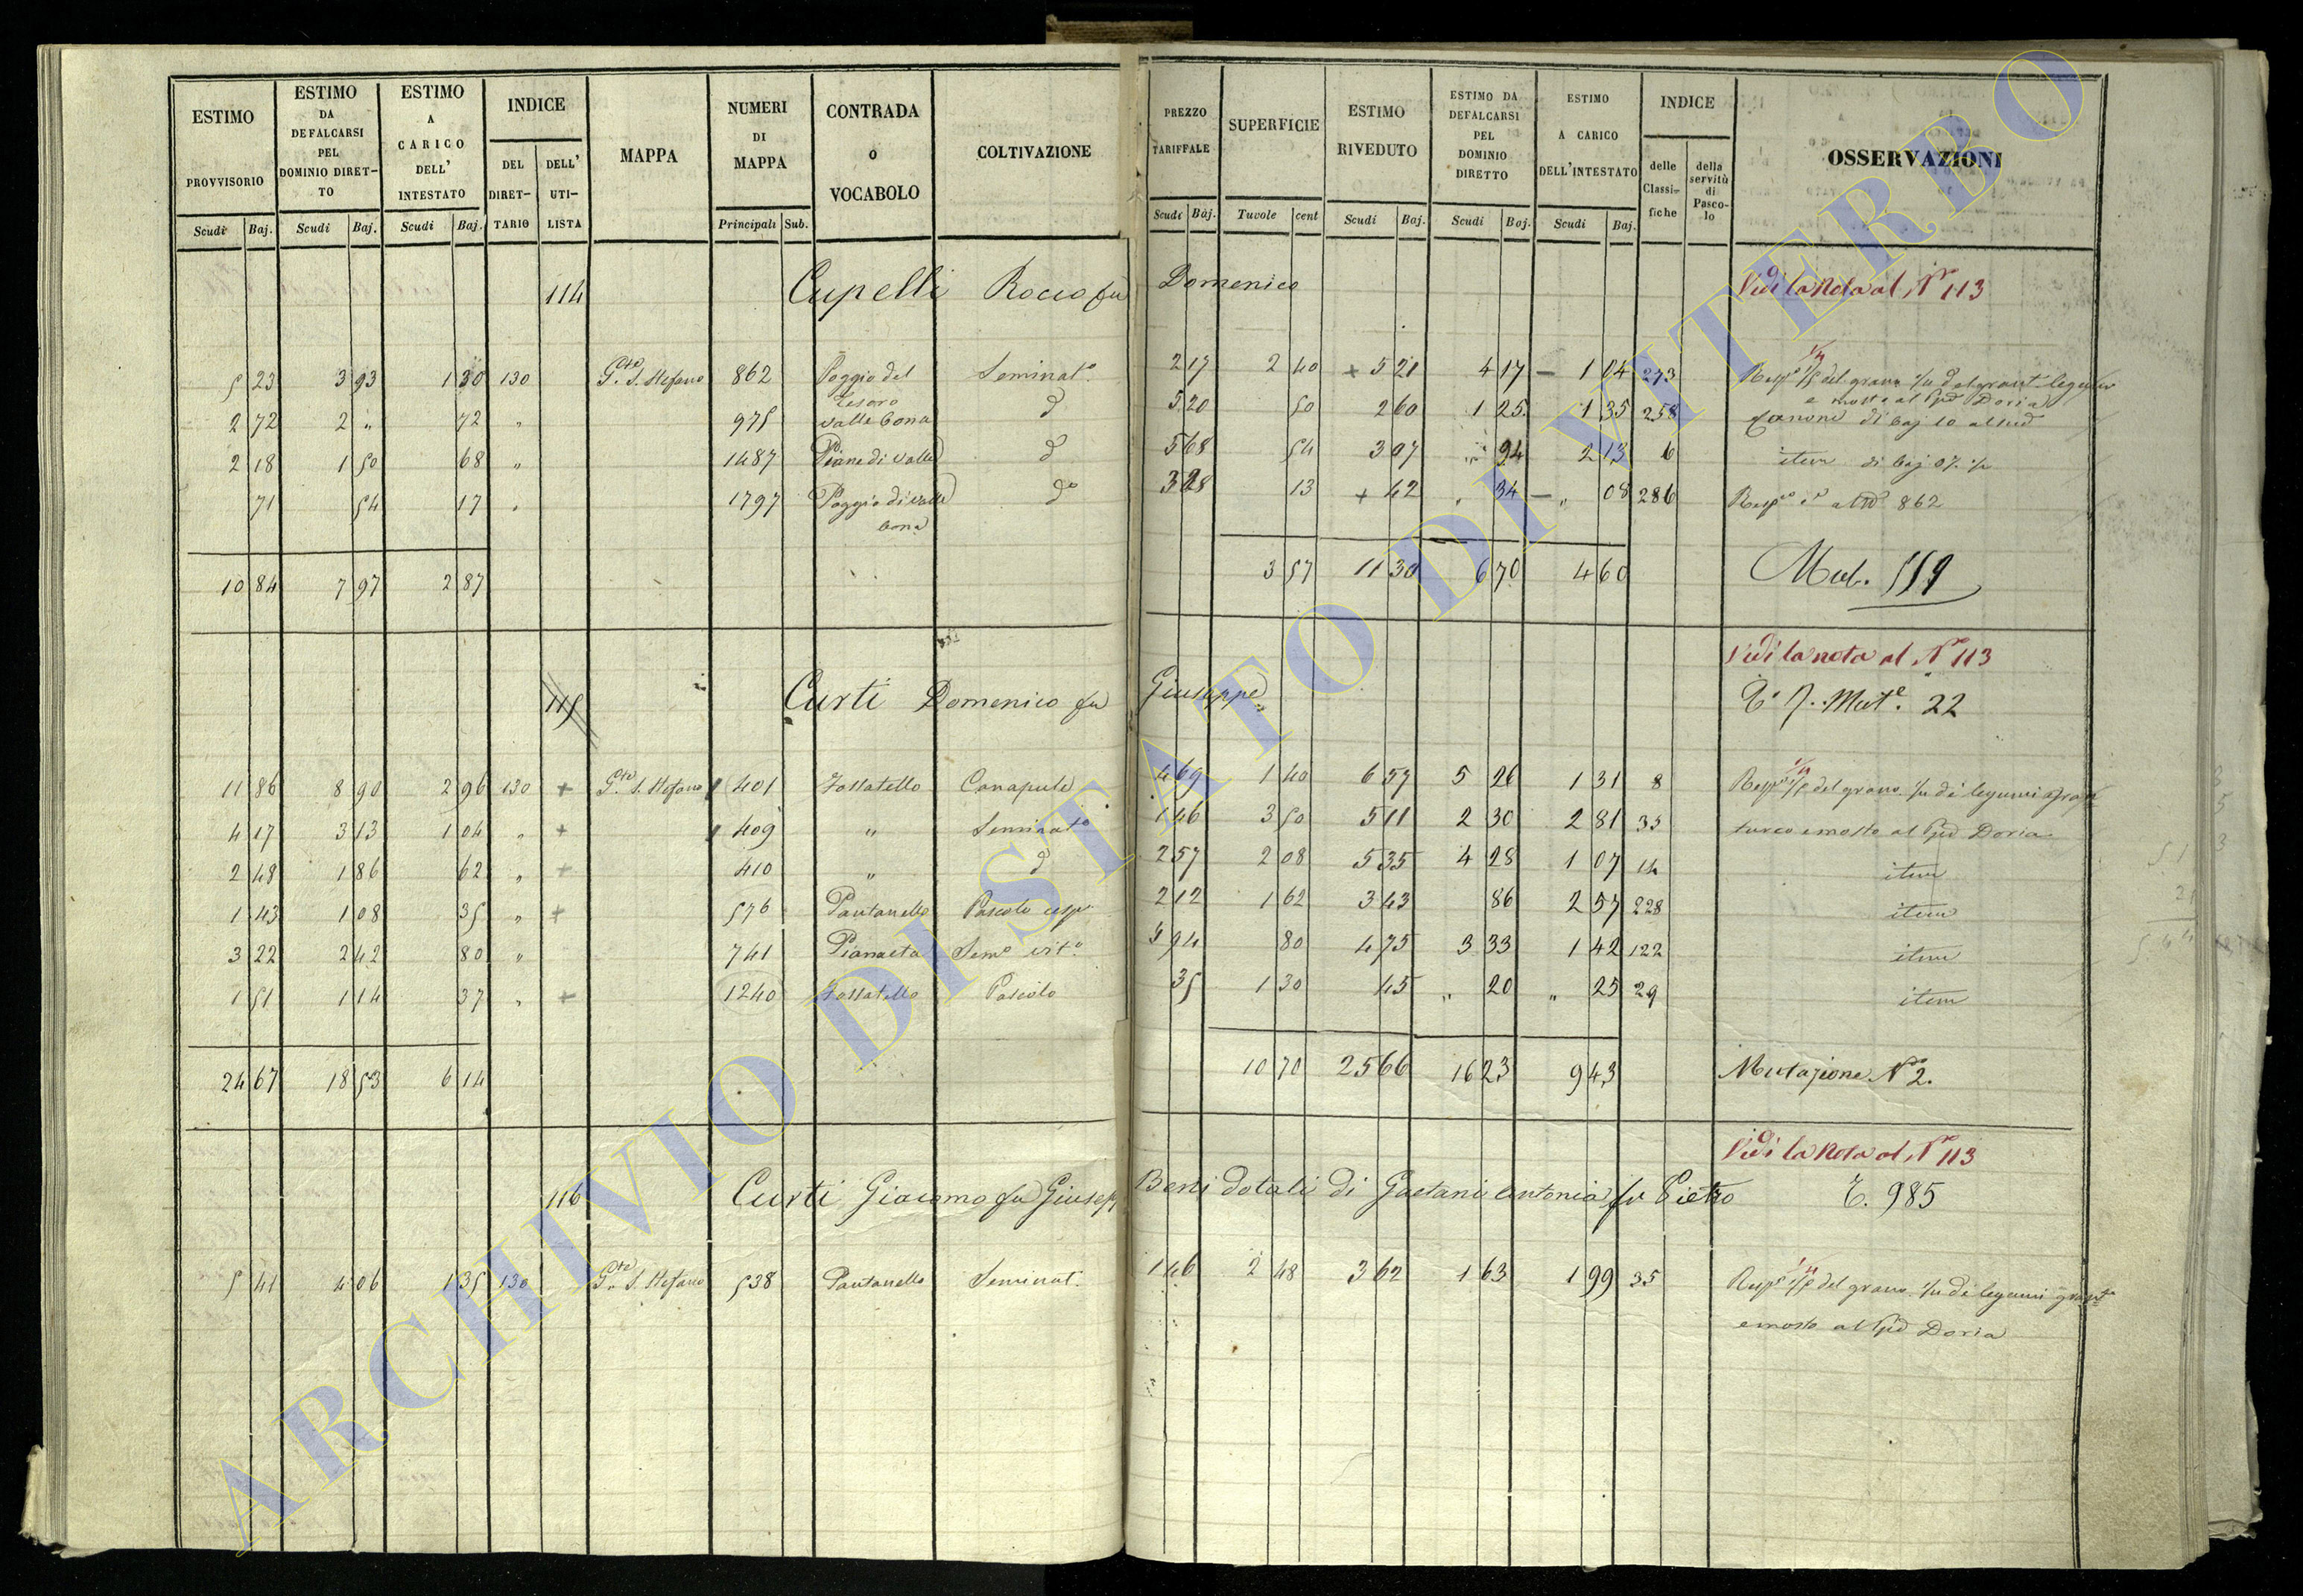 ESTIMO PROVVISORIO Scudi Baj.
ESTIMO DA DEFALCARSI PEL DOMINIO DIRETTO Scudi Baj.
ESTIMO A CARICO DELL' INTESTATO Scudi Baj.
INDICE DEL DIRETTARIO DELL' UTILISTA
MAPPA
NUMERI DI MAPPA Principali Sub.
CONTRADA O VOCABOLO
COLTIVAZIONE
PREZZO TARIFFALE Scudi Baj.
SUPERFICIE Tavole cent
ESTIMO RIVEDUTO Scudi Baj.
ESTIMO DA DEFALCARSI PEL DOMINIO DIRETTO Scudi Baj.
ESTIMO A CARICO DELL'INTESTATO Scudi Baj.
INDICE delle Classifiche della servitù di Pascolo
OSSERVAZIONI
114 Cupelli Rocco fu Domenico Vidi la Nota al N° 113
5 23 3 93 1 30 130 Pte S. Stefano 862 Poggio del Tesoro Seminat° 2 17 2 40 + 5 21 4 17 — 1 04 273 del grano
e mosto al Doria
2 72 2 „ 72 „ 975 Valle bona d° 5 20 50 2 60 1 25 1 35 258 Canone di baj 10
2 18 1 50 68 „ 1487 Piane di Valle d° 5 68 54 3 07 94 2 13 6 item di baj
71 54 17 „ 1797 Poggio di Valle bona d° 3 28 13 + 42 „ 34 — „ 08 286 862
10 84 7 97 2 87 3 57 11 30 6 70 4 60 Mut. 559
Vidi la nota al N° 113
115 Curti Domenico fu Giuseppe Mut°. 22
11 86 8 90 2 96 130 + Pte S. Stefano 401 Fossatello Canapule 4 69 1 40 6 57 5 26 1 31 8 del grano di legumi
4 17 3 13 1 04 „ + 409 „ Seminat° 1 46 3 50 5 11 2 30 2 81 35 turco e mosto al Doria
2 48 1 86 62 „ + 410 „ d° 2 57 2 08 5 35 4 28 1 07 14 item
1 43 1 08 35 „ + 576 Pantanello Pascolo cesp. 2 12 1 62 3 43 86 2 57 228 item
3 22 2 42 80 „ 741 Pianaeta Sem° vit° 5 94 80 4 75 3 33 1 42 122 item
1 51 1 14 37 „ + 1240 Fossatello Pascolo 35 1 30 45 „ 20 „ 25 29 item
24 67 18 53 6 14 10 70 25 66 16 23 9 43 Mutazione N° 2.
Vidi la Nota al N° 113
116 Curti Giacomo fu Giusep. Beni dotali di Gaetani Antonia fu Pietro 985
5 41 4 06 1 35 130 Pte S. Stefano 538 Pantanello Seminat. 1 46 2 48 3 62 1 63 1 99 35 del grano di legumi
e mosto al Doria
ARCHIVIO DI STATO DI VITERBO